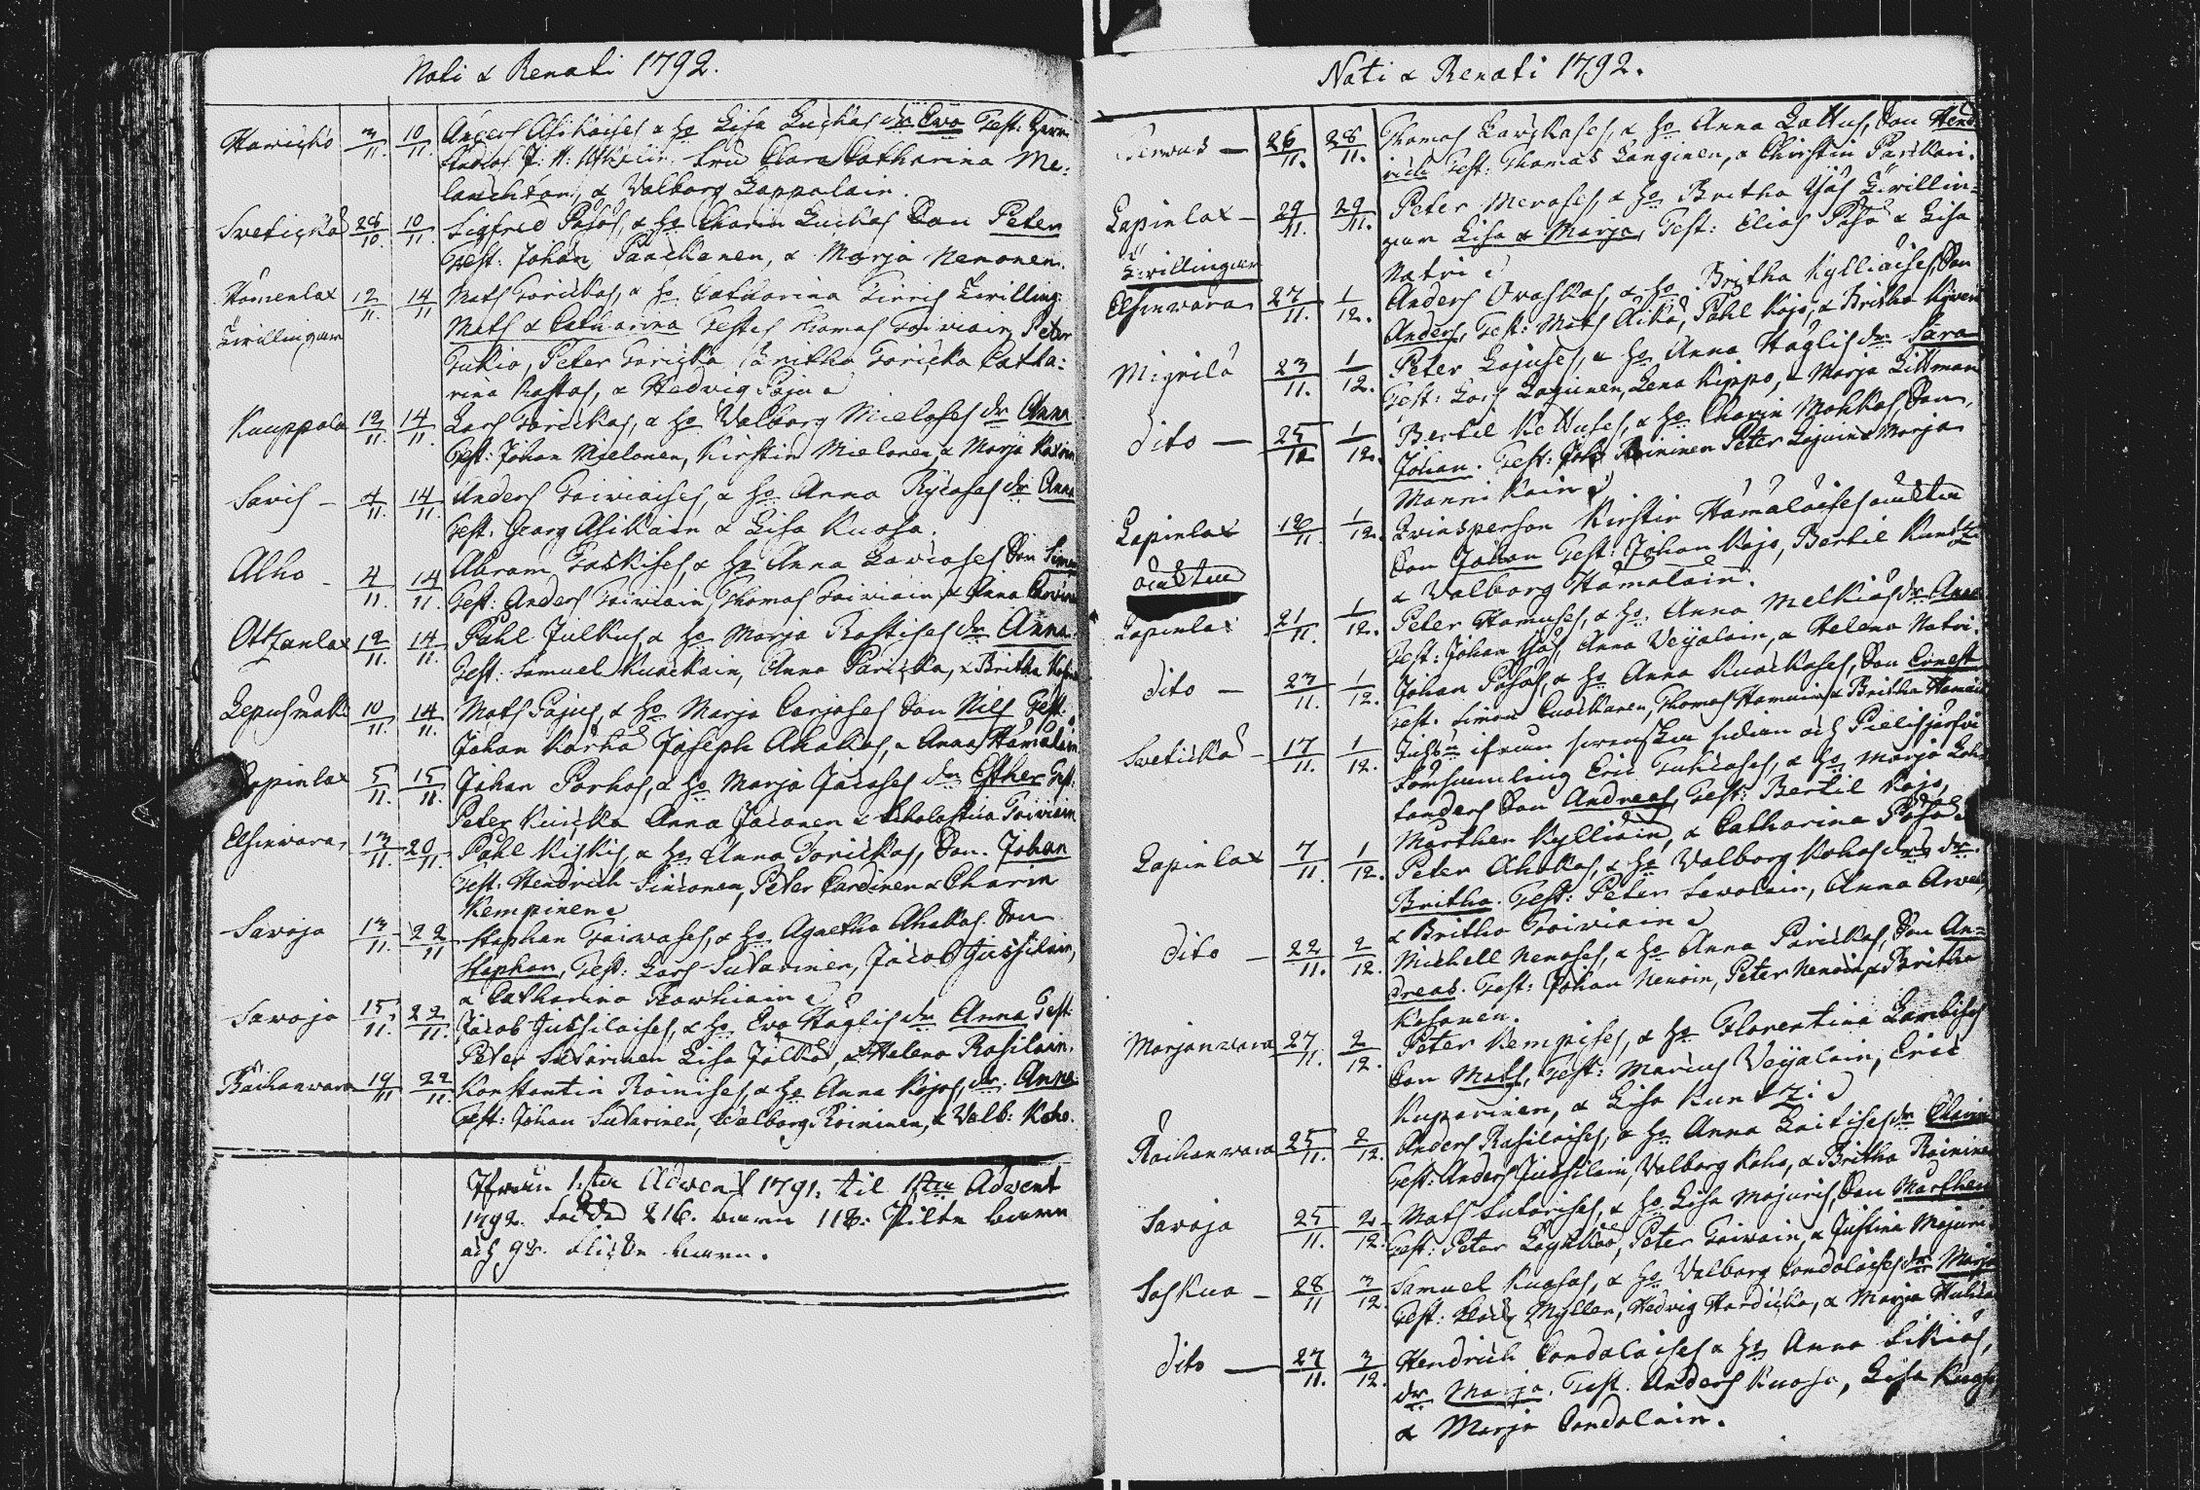 Nati & Renati 1792.
Haricko 3/11. 10/11. Anders Asikaises & Ho Lisa Luckas dr Eva Test: Herr
J: H: Fru Clara Catharina Me-
& Valborg Lappalain.
Svetickä 28/10. 10/11. Sigfred Påsos, & Ho Charin Luckas Son Peter
Test: Johan Paackanen, & Marja Nenonen.
Hömenlax 12/11. 14/11 Mats Torickas, & Ho Catharina Tirris Twilling:
Twillingar Mats & Catharina Testes Thomas Toiviain, Peter
Tukia, Peter Toricka, Britha Toricka Catha:
rina Rastas, & Hedvig Paju
Kauppala 12/11. 14/11. Lars Torickas, & Ho Valborg Mielases dr Anna
Test: Johan Mielonen, Kirstin Mielonen, & Marja
Savis 4/11. 14/11. Anders Toiviaises, & Ho Anna dr Anna
Test: Georg Asikain & Lisa Kuosa.
Alho 4/11. 14/11. Abram Taskises, & Ho Anna Son Simon
Test: Anders Toiviain, Thomas Toiviain, & Anna
Ottzanlax 12/11. 14/11. Påhl Julkus, & Ho Marja Rastises dr Anna.
Test: Samuel Kuackain, Anna Paricka, & Britha
Lepusmäki 10/11. 14/11. Mats Pajus, & Ho Marja Carjases Son Nils Test.
Johan Kärhä Joseph Ahokas, & Anna Hämäläin.
Lapinlax 5/11. 15/11. Johan Porhas, & Ho Marja Jacases dr Esther Test:
Peter Anna Jaconen & Scholastica Toiviain
Elsenvara 13/11. 20/11. Påhl Kiskis, & Ho Anna Torickas, Son. Johan
Test: Hendrich Sinconen, Peter Pardinen & Charin
Kempinen
Savaja 13/11. 22/11 Staphan Toivases, & Ho Agnetha Ahokas. Son
Staphan, Test: Lars Sutarinen, Jacob Jussilain,
& Catharina
Savaja 15/11. 22/11. Jacob Jussilaises, & Ho Eva Haglis dr Anna Test.
Peter Sutarinen Lisa & Helena Rasilain.
Räihänvara 19/11 22/11. Konstantin Roinises, & Ho Anna Kojos, dr. Anna
Test: Johan Sutarinen, Valborg Roininen, & Valb: Koho.
Ifrån 1:sta Advent 1791. til 1sta Advent
1792. födda 216. barn 118: Pilte barn
och 98. flicke barn.
Nati & Renati 1792.
Tervus 26/11. 28/11. Thomas & Ho Anna Lattus, Son Hend
rich Test: Thomas Langinen, & Christin Parckari.
Lapinlax 29/11. 29/11. Peter Merases, & Ho Britha Ujäs Twillin-
Twillingar gar Lisa & Marja, Test: Elias Påsa & Lisa
Natri
Elsenvara 27/11. 1/12. Anders Ovaskas, & Ho Britha Kylliäises, Son
Anders, Test: Mats Aika, Påhl Kojo, & Britha
Migrilä 23/11. 1/12. Peter Lajuses, & Ho Anna Haglis dr Sara
Test: Lars Lajunen, Lena Kippo, & Marja Littman
dito 25/11 1/12. Bertil Kettuses, & Ho Charin Mohkas, Son
Johan. Test: Joh: Roininen Peter Lajuin & Marja
Mannikain
Lapinlax 19/11. 1/12. Qvinsperson Kirstin Hämäläises oäkta
oäkta Son Johan Test: Johan Kojo, Bertil Kuntzi
& Valborg Hämäläin.
Lapinlax 21/11. 1/12. Peter Hamuses, & Ho Anna Melkiäs dr Anna
Test: Johan Ujäs, Anna Veijalain, & Helena Natri.
dito 23/11. 1/12. Johan Påsos, & Ho Anna Kuackases, Son Ernest
Test. Simon Cuackanen, Thomas Hamuin, & Britha Hamuin
Svetickä 17/11. 1/12. ifrån Svenska sidan och Pielisjärfvi
Församling Eric Tukiases, & Ho Marja
Son Andreas, Test: Bertil Kojo,
Marthen Kylliäin, & Catharina Påsa
Lapinlax 7/11. 1/12. Peter Ahokas, & Ho Valborg Kohos dr
Britha. Test: Peter Savolain, Anna
& Britha Toiviain
dito 22/11. 2/12. Michell Nenases, & Ho Anna Parickas, Son An-
dreas. Test: Johan Nenoin, Peter Nenoin, & Britha
Kosonen.
Marjanvara 27/11. 2/12. Peter Kempises, & Ho Florentina Lambises
Son Mats, Test: Marcus Veijalain, Eric
Kuparinen, & Lisa Kuntzi
Räihänvara 25/11. 2/12. Anders Rasilaises, & Ho Anna Laitises dr Charin
Test: Anders Jussilain, Valborg Koho, & Britha Roininen
Savaja 25/11. 2/12. Mats Sutarises, & Ho Lisa Majuris, Son Marthen
Test: Peter Peter Toivain, & Justina Majuri
Soskua 28/11 3/12. Samuel Kuosas, & Ho Valborg Condolaises dr Marja
Test: Myller, Hedvig Hardicka, & Marja
dito 27/11. 3/12. Hendrich Condolaises & Ho Anna Sikiäs,
dr Marja. Test. Anders Kuosa, Lisa Kuosa,
& Marja Condolain.